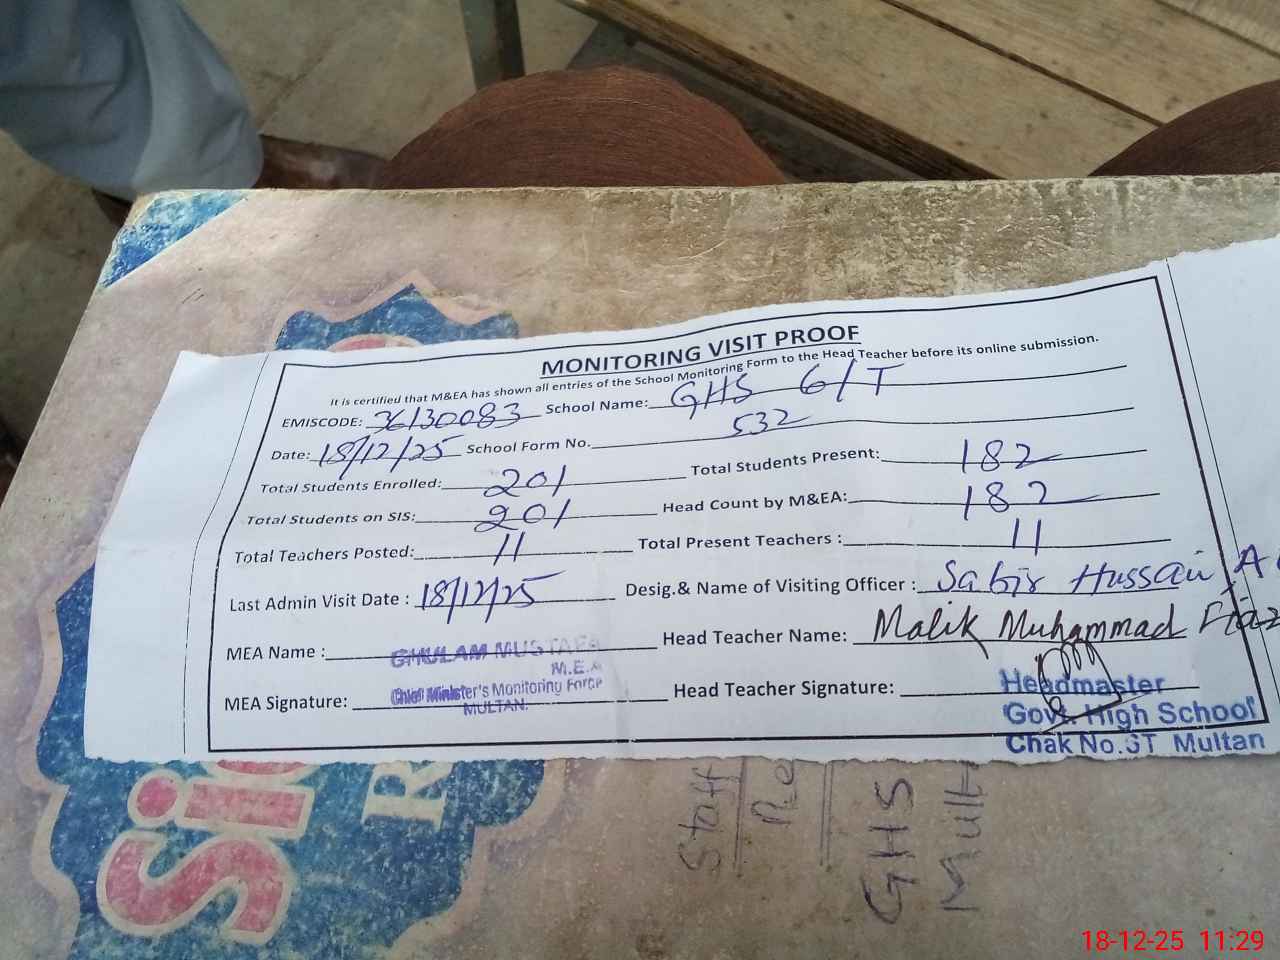 MONITORING VISIT PROOF
It is certified that M&EA has shown all entries of the School Monitoring Form to the Head Teacher before its online submission.
EMISCODE: 36130083 School Name: GHS 6/T
Date: 18/12/25 School Form No. 532
Total Students Enrolled: 201 Total Students Present: 182
Total Students on SIS: 201 Head Count by M&EA: 182
Total Teachers Posted: 11 Total Present Teachers : 11
Last Admin Visit Date : 18/12/25 Desig.& Name of Visiting Officer : Sabir Hussain A
MEA Name : GHULAM MUSTAFA Head Teacher Name: Malik Muhammad
M.E.A
MEA Signature: Chief Minister's Monitoring Force Head Teacher Signature:
MULTAN.
Headmaster
Govt. High School
Chak No.6T Multan
Staff
Re
GHS
Mult
Sic
R
18-12-25 11:29